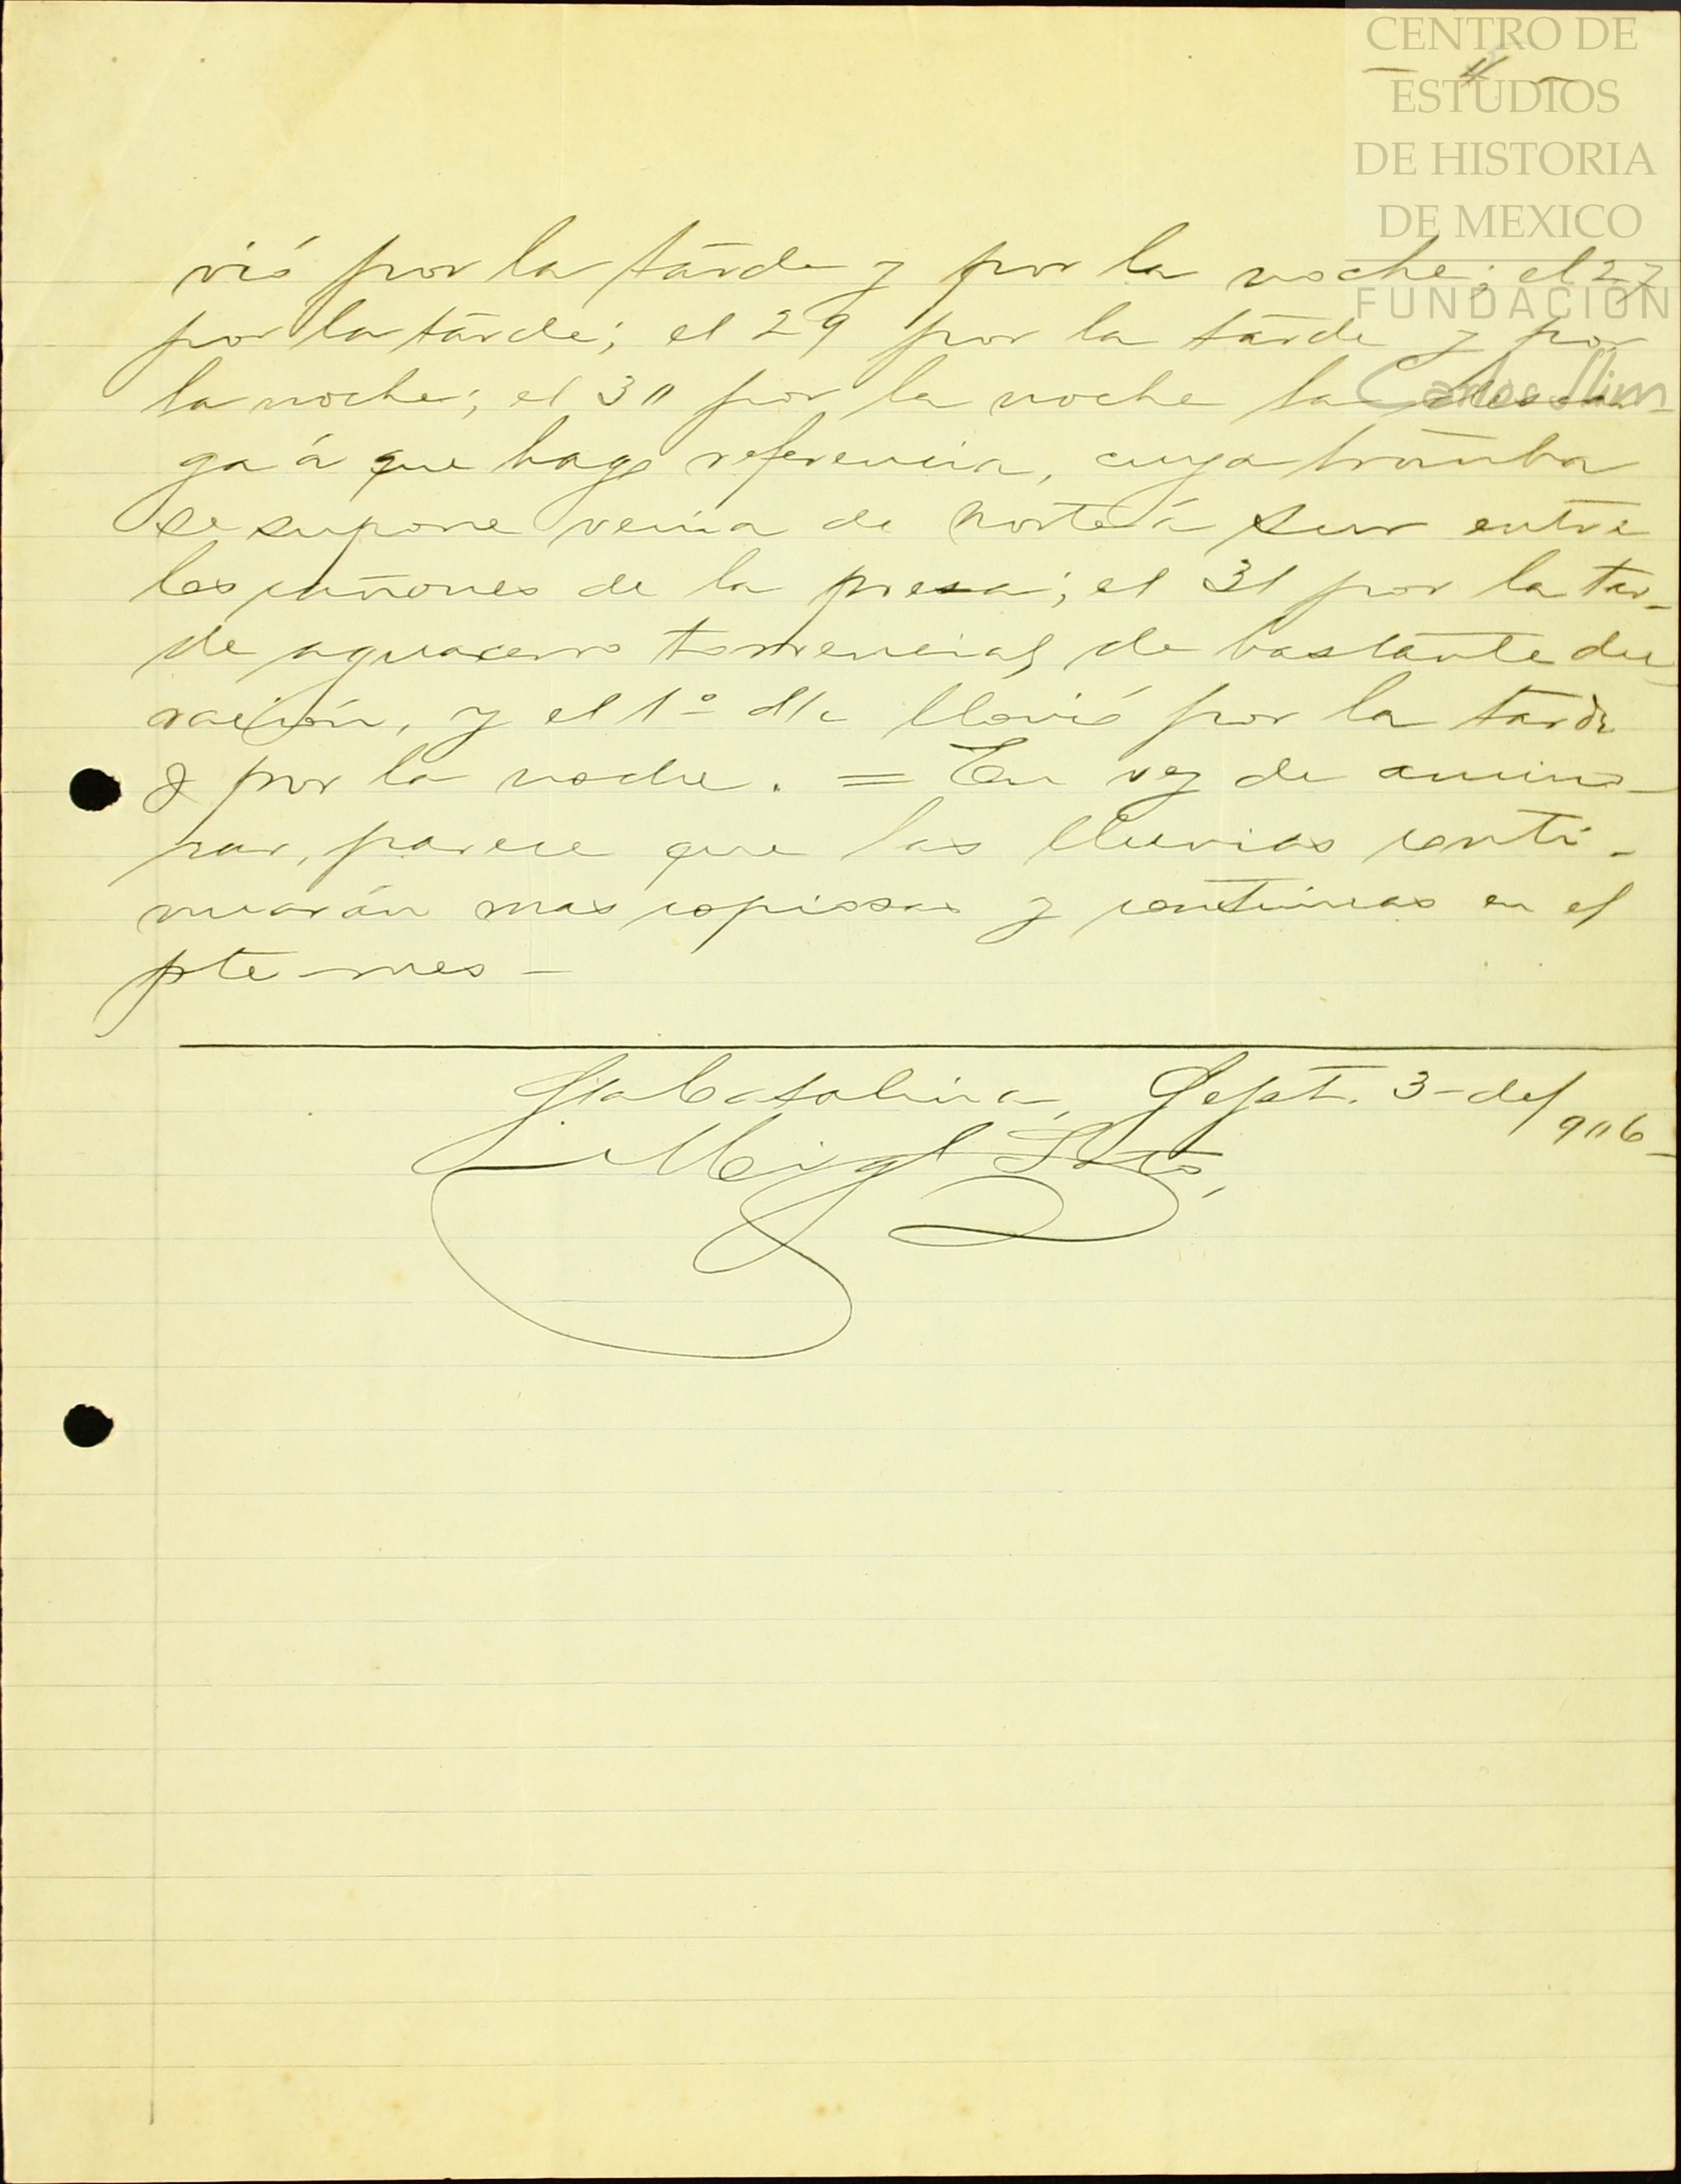 CENTRO DE
ESTUDIOS
DE HISTORIA
DE MEXICO
FUNDACIÓN
Carlos Slim
- 4 -
vió por la tarde y por la noche; el 27
por la tarde; el 29 por la tarde y por
la noche; el 30 por la noche la descar-
ga á que hago referencia, cuya tromba
se supone venia de norte á sur entre
los cañones de la presa; el 31 por la tar-
de aguacero torrencial, de bastante du-
ración, y el 1º d/c llovió por la tarde
y por la noche. = En vez de amino-
rar, parece que las lluvias conti-
nuarán mas copiosas y continuas en el
pte mes -
Sta Catalina, Sept. 3 - de/906-
Migl Soto,